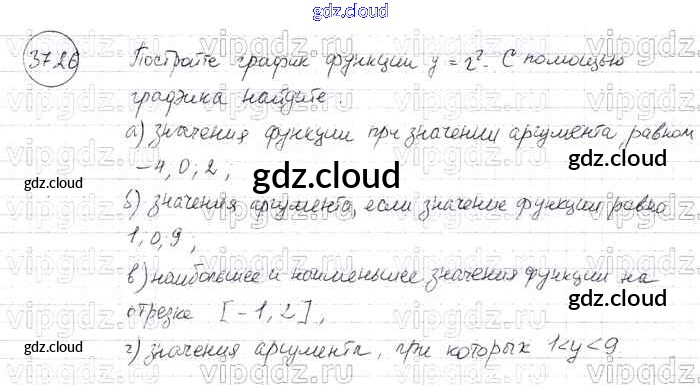 gdz.cloud
37.26 Постройте график функции y = x². С помощью
графика найдите:
а) значения функции при значении аргумента, равном
-4, 0, 2;
gdz.cloud
gdz.cloud
gdz.cloud
б) значения аргумента, если значение функции равно
1, 0, 9;
в) наибольшее и наименьшее значения функции на
отрезке [-1, 2];
gdz.cloud
г) значения аргумента, при которых 1<y<9
gdz.cloud
gdz.cloud